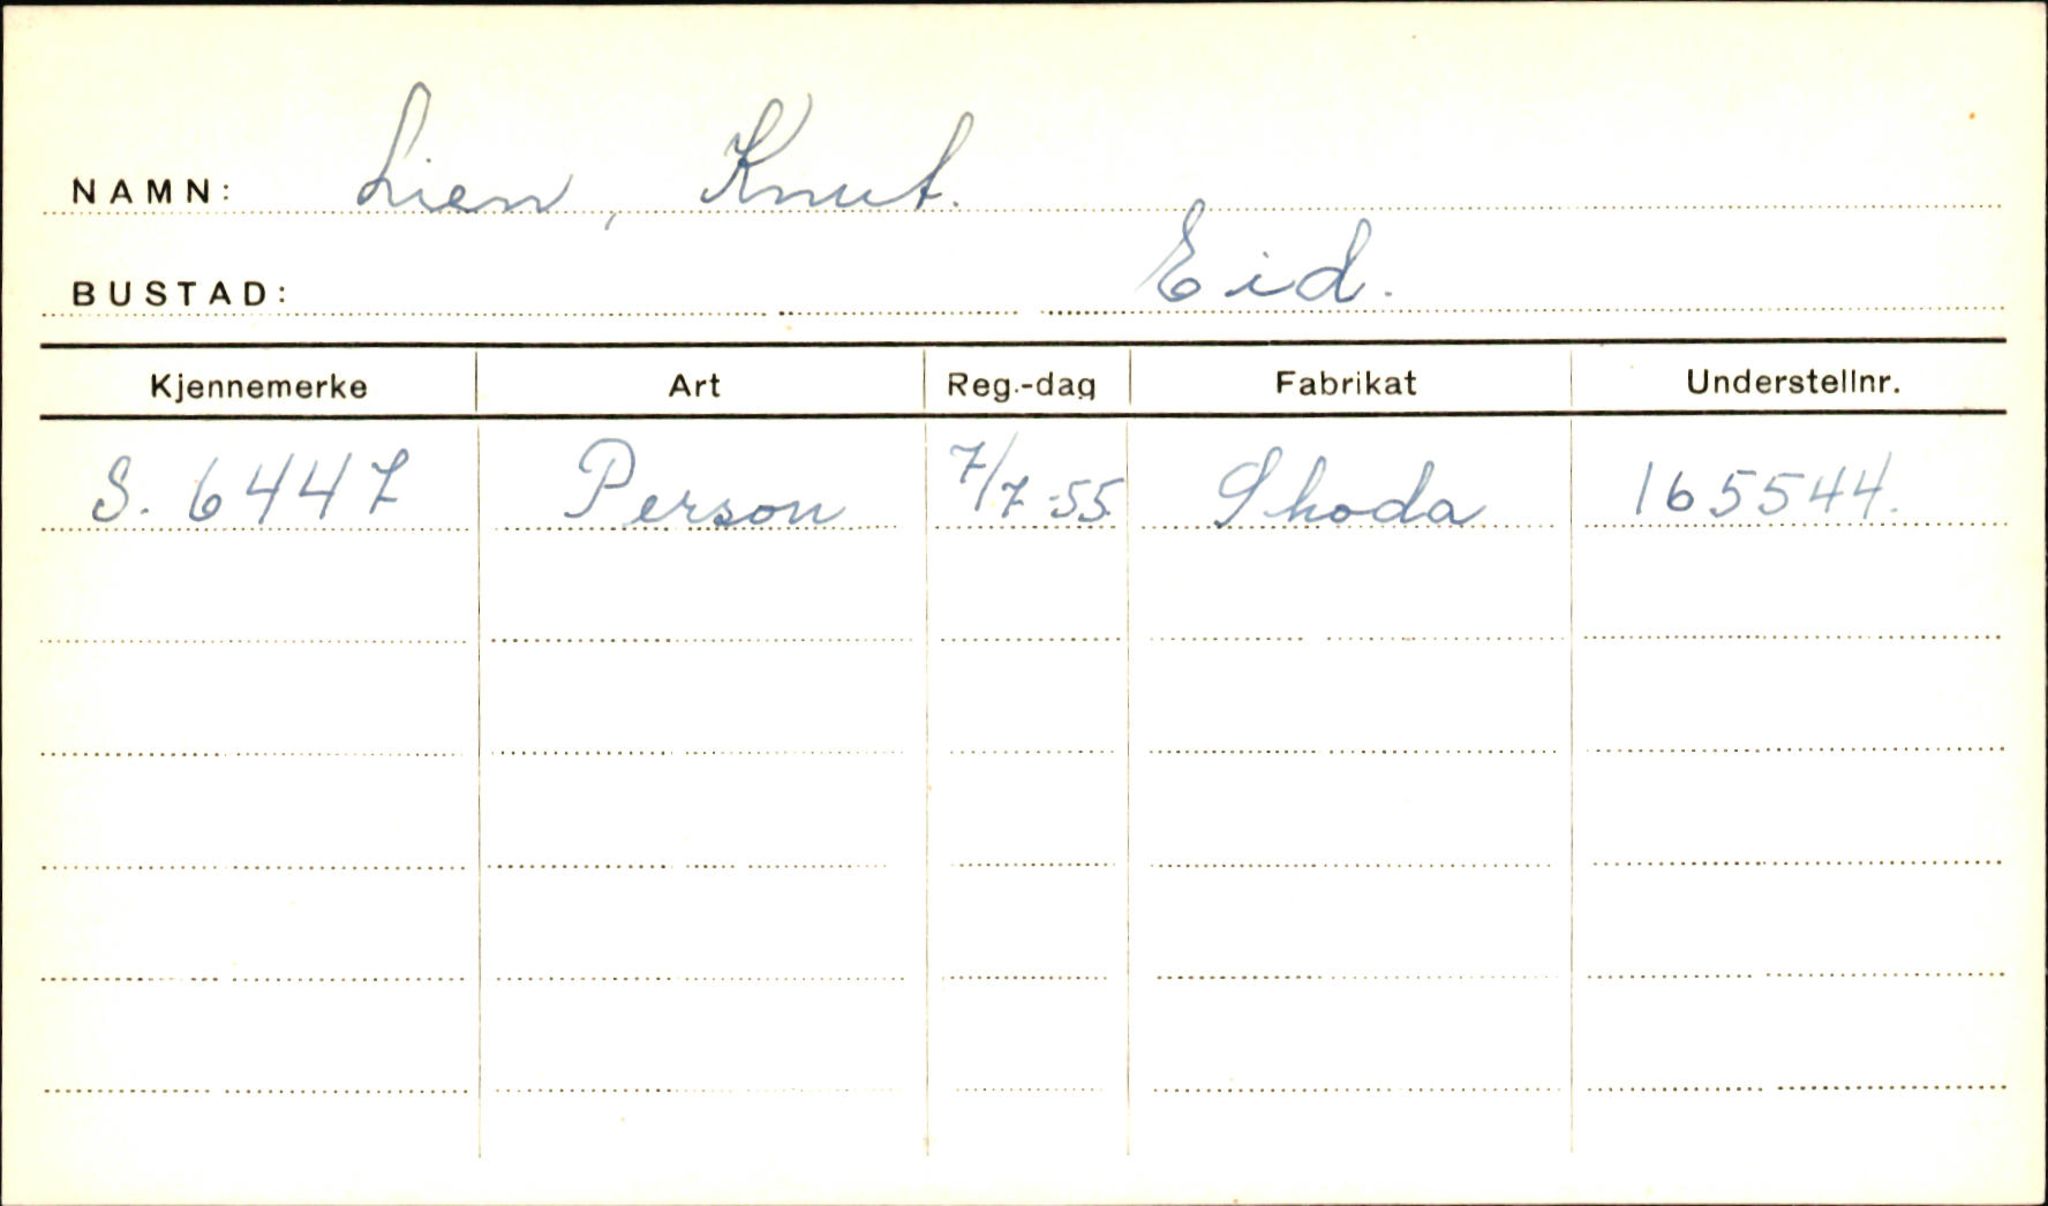 NAMN: Lien, Knut.
BUSTAD: Eid.
Kjennemerke Art Reg.-dag Fabrikat Understellnr.
S. 6447 Person 7/7-55. Skoda 165544.